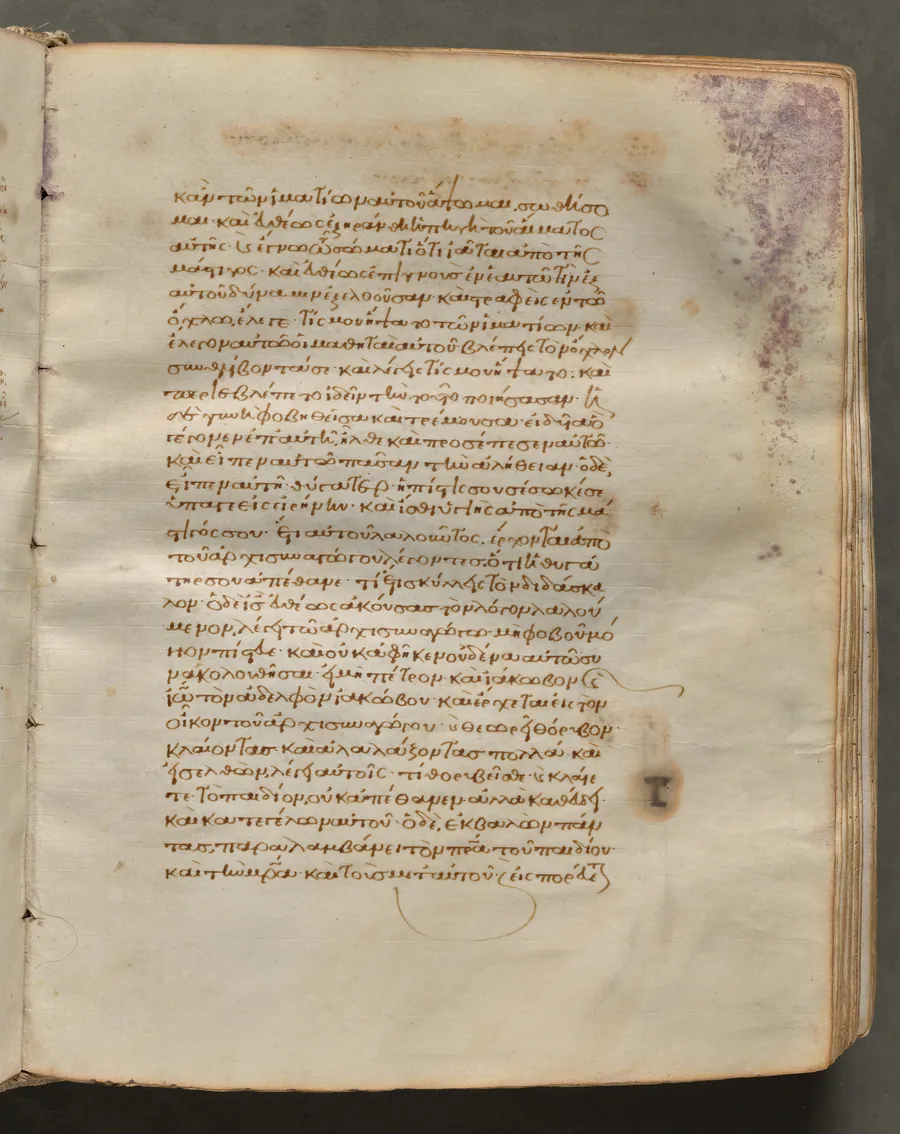 κἂν τῶν ἱματίων αὐτοῦ ἅψωμαι, σωθήσο
μαι· καὶ εὐθέως ἐξηράνθη ἡ πηγὴ τοῦ αἵματος
αὐτῆς· καὶ ἔγνω τῶ σώματι ὅτι ἴαται ἀπὸ τῆς
μάστιγος· καὶ εὐθέως ἐπιγνοὺς ἐν ἑαυτῶ τὴν ἐξ
αὐτοῦ δύναμιν ἐξελθοῦσαν καὶ στραφεὶς ἐν τῶ
ὄχλω, ἔλεγε· τίς μου ἥψατο τῶν ἱματίων· καὶ
ἔλεγον αὐτῶ οἱ μαθηταὶ αὐτοῦ· βλέπεις τὸν ὄχλον
συνθλίβοντά σε· καὶ λέγεις τίς μου ἥψατο; καὶ
περιεβλέπετο ἰδεῖν τὴν τοῦτο ποιήσασαν· ἡ
δὲ γυνὴ φοβηθεῖσα καὶ τρέμουσα· εἰδυῖα ὃ
γέγονεν ἐπ' αὐτῆ, ἦλθε καὶ προσέπεσεν αὐτῶ·
καὶ εἶπεν αὐτῶ πᾶσαν τὴν ἀλήθειαν· ὁ δὲ,
εἶπεν αὐτῆ· θύγατερ· ἡ πίστις σου σέσωκέ σε
ὕπαγε εἰς εἰρήνην· καὶ ἴσθι ὑγιὴς ἀπὸ τῆς μά
στιγός σου· Ἔτι αὐτοῦ λαλοῦντος, ἔρχονται ἀπὸ
τοῦ ἀρχισυναγώγου λέγοντες· ὅτι ἡ θυγά
τηρ σου ἀπέθανε· τί ἔτι σκύλλεις τὸν διδάσκα
λον· ὁ δὲ ις εὐθέως ἀκούσας τὸν λόγον λαλού
μενον, λέγει τῶ ἀρχισυναγώγω· μὴ φοβοῦ μό
νον πίστευε· καὶ οὐκ ἀφῆκεν οὐδένα αὐτῶ συ
νακολουθῆσαι· εἰ μὴ πέτρον καὶ ἰάκωβον καὶ
ἰω τὸν ἀδελφὸν ἰακώβου· καὶ ἔρχεται εἰς τὸν
οἶκον τοῦ ἀρχισυναγώγου· καὶ θεωρεῖ θόρυβον·
κλαίοντας καὶ ἀλαλάζοντας πολλά· καὶ
εἰσελθὼν, λέγει αὐτοῖς· τί θορυβεῖσθε· καὶ κλαίε
τε· τὸ παιδίον, οὐκ ἀπέθανεν ἀλλὰ καθεύδει·
καὶ κατεγέλων αὐτοῦ· ὁ δὲ, ἐκβαλὼν πάν
τας, παραλαμβάνει τὸν πρα τοῦ παιδίου·
καὶ τὴν μρα· καὶ τοὺς μετ' αὐτοῦ· καὶ εἰσπορεύε